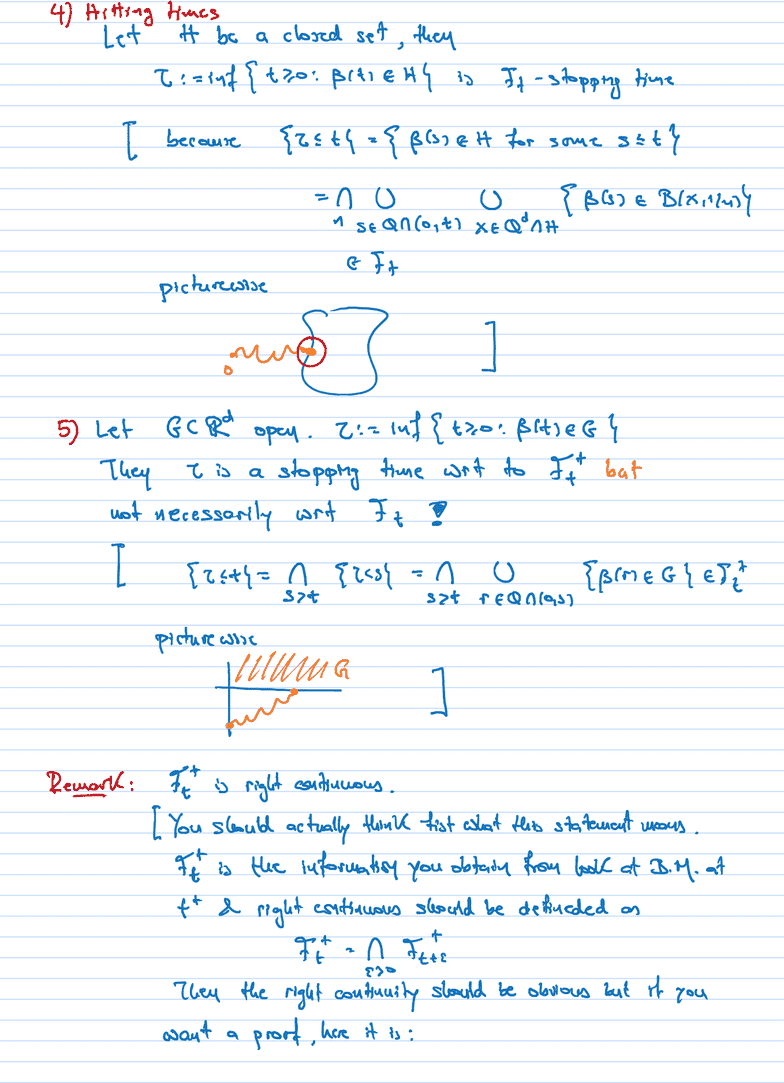 4) Hitting times
Let H be a closed set, then
τ := inf { t ≥ 0 : β(t) ∈ H } is F_t - stopping time
[ because {τ ≤ t} = { β(s) ∈ H for some s ≤ t }
= ∩_n ∪_{s ∈ Q∩(0,t)} ∪_{x ∈ Q^d ∩ H} { β(s) ∈ B(x, 1/n) }
∈ F_t
picturewise
0
]
5) Let G ⊂ R^d open. τ := inf { t ≥ 0 : β(t) ∈ G }
Then τ is a stopping time wrt to F_t^+ but
not necessarily wrt F_t !
[ {τ ≤ t} = ∩_{s>t} {τ < s} = ∩_{s>t} ∪_{r ∈ Q∩(0,s)} { β(r) ∈ G } ∈ F_t^+
picturewise
G
]
Remark: F_t^+ is right continuous.
[ You should actually think fist what this statement means.
F_t^+ is the information you obtain from look at B.M. at
t^+ & right continuous should be definded as
F_t^+ = ∩_{ε>0} F_{t+ε}^+
Then the right continuity should be obvious but if you
want a proof, here it is: